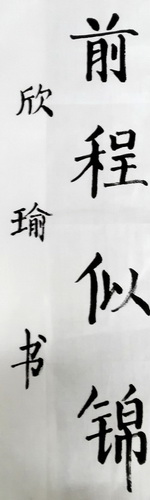 前程似锦
欣瑜书